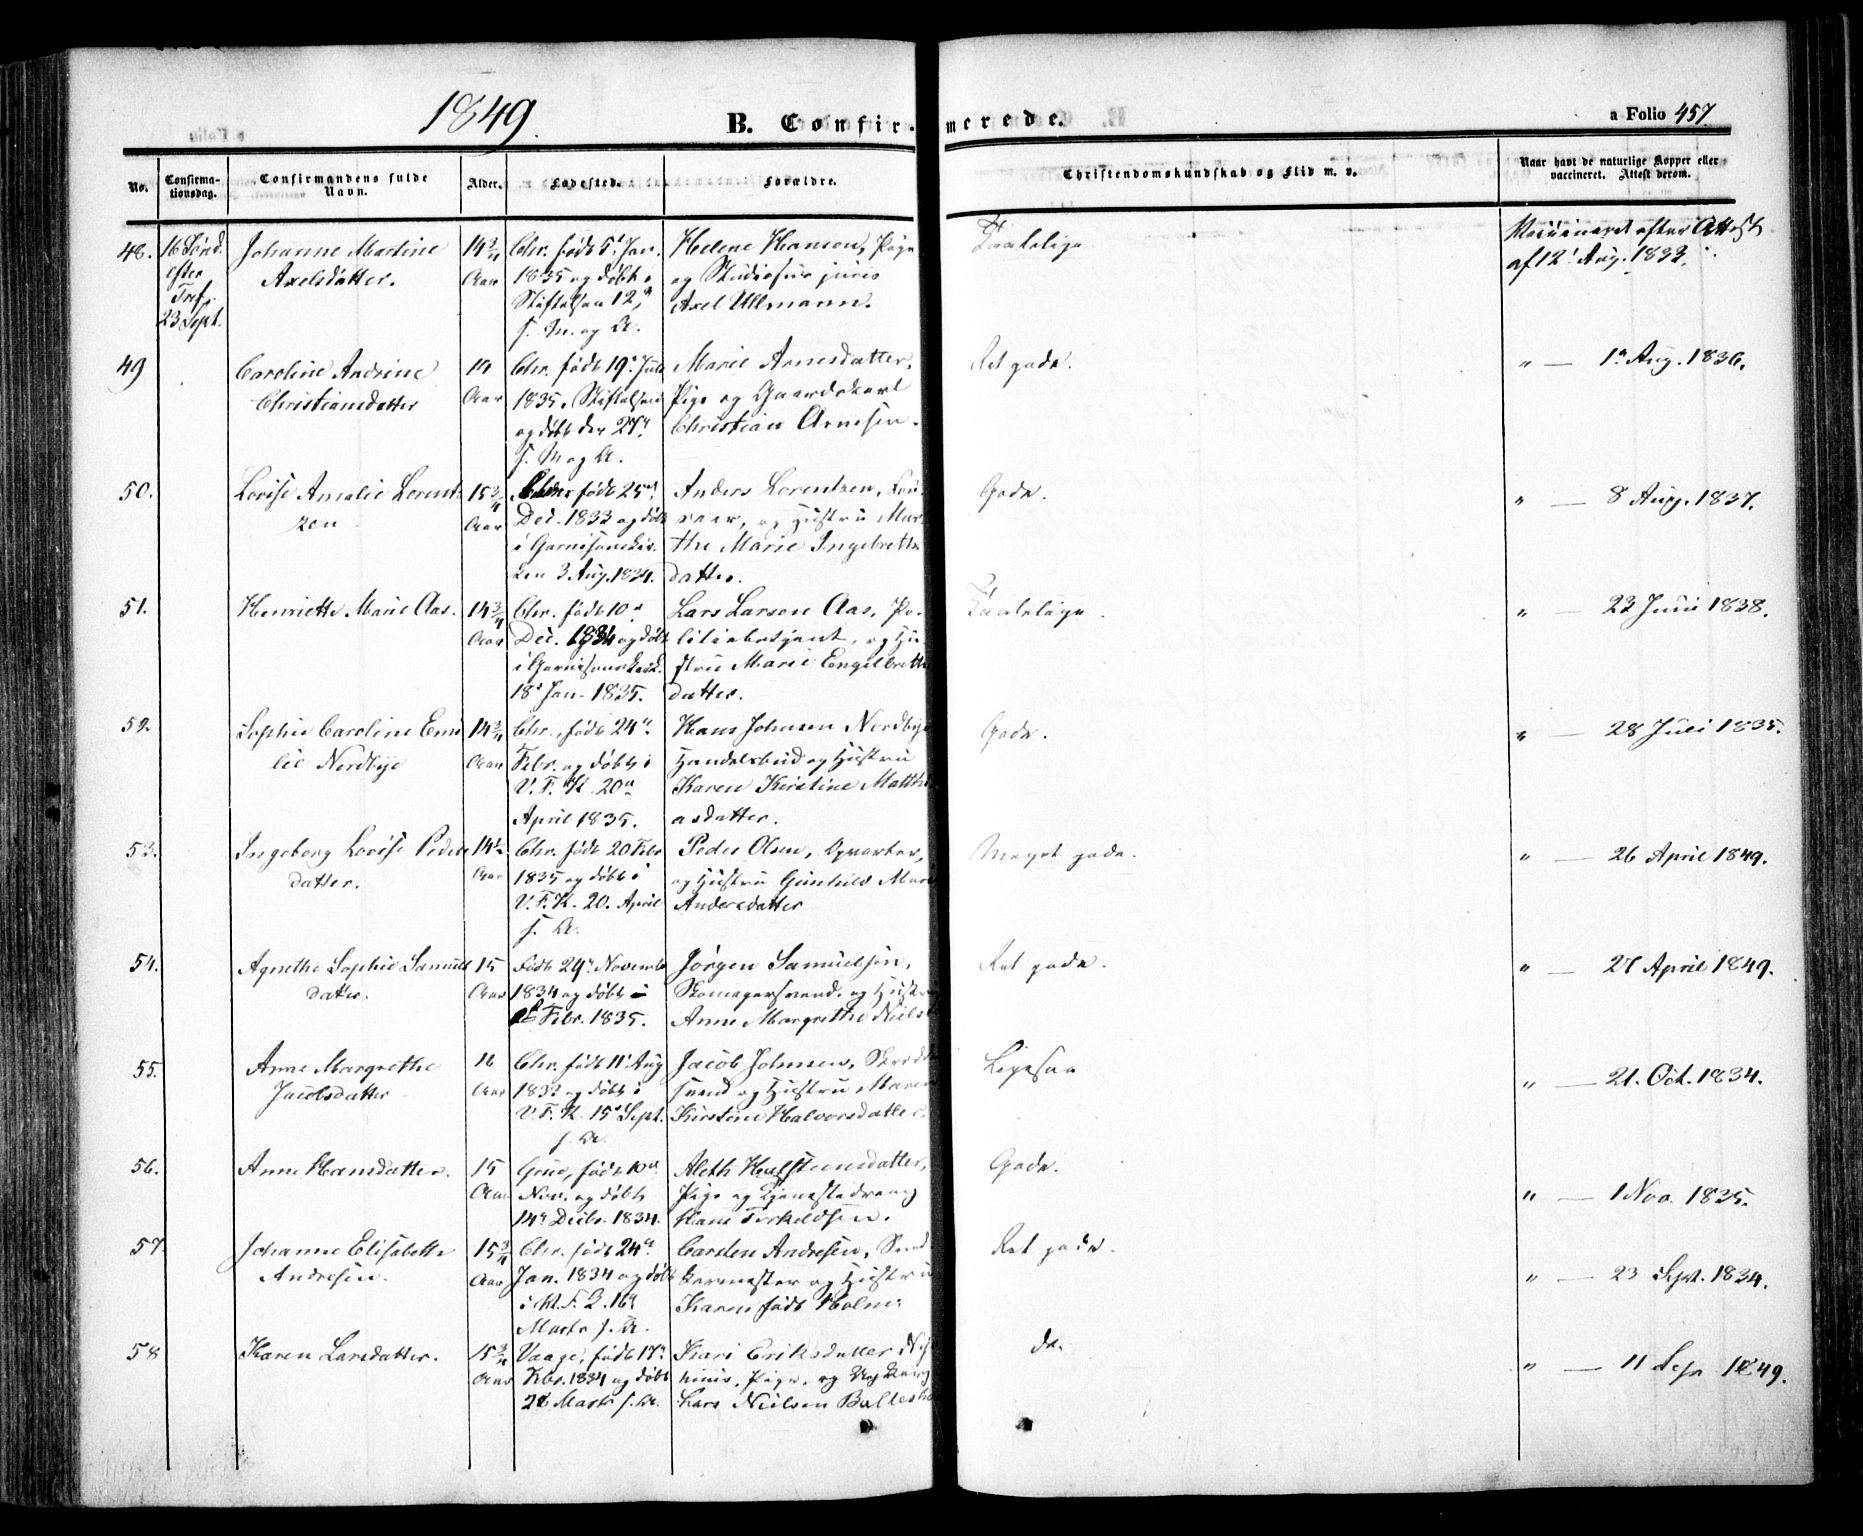 1849.
B. Confirmerede.
a Folio 457
No.
Confirmationsdag.
Confirmandens fulde Navn.
Alder.
Fødested.
Forældre.
Christendomskundskab og Flid m. v.
Naar havt de naturlige Kopper eller vaccineret. Attest derom.
48.
16 Sønd.
efter
Tref.
23 Sept.
Johanne Martine
Axelsdatter.
14 3/4
Aar
Chr. født 5t Jan.
1835 og døbt i
Stiftelsen 12t
s. M. og A.
Helene Hansen, Pige
og Studiosus juris
Axel Ullmann.
Taalelige
Vaccineret efter Attest
af 12t Aug. 1833.
49
Caroline Andrine
Christiansdatter
14
Aar
Chr. født 19t Juli
1835, Stiftelsen
og døbt den 27t
s. M og A.
Marie Arnesdatter,
Pige og Gaardskarl
Christian Arnesen.
Ret gode.
" — 1t Aug. 1836.
50.
Lovise Amalie Lorent-
zen
15 3/4
Aar
født 25t
Dec. 1833 og døbt
i Garnisonskir-
ken 3 Aug. 1834.
Anders Lorentzen,
og Hustru Mar-
the Marie Ingebreths
datter.
Gode.
" — 8 Aug. 1837.
51.
Henriette Marie Aas.
14 3/4
Aar
Chr. født 10t
Dec. 1834 og døbt
i Garnisonskirk.
18t Jan. 1835.
Lars Larsen Aas, Po-
litiebetjent, og Hu-
stru Marie Engelbreths
datter.
Taalelige.
" — 22 Juni 1838.
52.
Sophie Caroline Emi
lie Nordbye
14 3/4
Aar
Chr., født 24t
Febr. og døbt i
V. F. K. 20t
April 1835.
Hans Johnsen Nordbye
Handelsbud og Hustru
Karen Kirstine Matthi
asdatter.
Gode.
" — 28 Juli 1835.
53.
Ingeborg Lovise Peders
datter.
14 1/2
Aar
Chr. født 20 Febr
1835 og døbt i
V. F. K. 20. April
s. A.
Peder Olsen, Opvarter,
og Hustru Gunhild Marie
Andersdatter
Meget gode.
" — 26 April 1849.
54.
Agnethe Sophie Samuels
datter.
15
Aar
Født 29t Novemb
1834 og døbt
Febr. 1835.
Jørgen Samuelsen,
Skomagersvend, og Hustru
Anne Margrethe Niels
Ret gode.
" — 27 April 1849.
55.
Anne Margrethe
Jacobsdatter
16
Aar
Chr. født 11t Aug
1833 og døbt i
V. F. K. 15t Sept.
s. A.
Jacob Johnsen, Skrædder
svend og Hustru Maren
Kirstine Halvorsdatter.
Ligesaa
" — 21. Oct. 1834.
56.
Anne Hansdatter.
15
Aar
Grue, født 10t
Nov. og døbt
14t Decbr. 1834.
Aleth Halfsteensdatter,
Pige og Tjenestedreng
Hans Terkeldsen.
Gode.
" — 1 Nov. 1835.
57
Johanne Elisabeth
Andresen.
15 3/4
Aar
Chr. født 24t
Jan. 1834 og døbt
16t
Marts s. A.
Carsten Andresen,
og Hustru
Karen født Holm.
Ret gode.
" — 23 Sept. 1834.
58
Karen Larsdatter.
15 3/4
Aar
Vaage, født 17t
Febr. 1834 og døbt
Marts s. A.
Kari Eriksdatter
Pige, og Ungkarl
Lars Nielsen
do.
" — 11 Sept 1849.